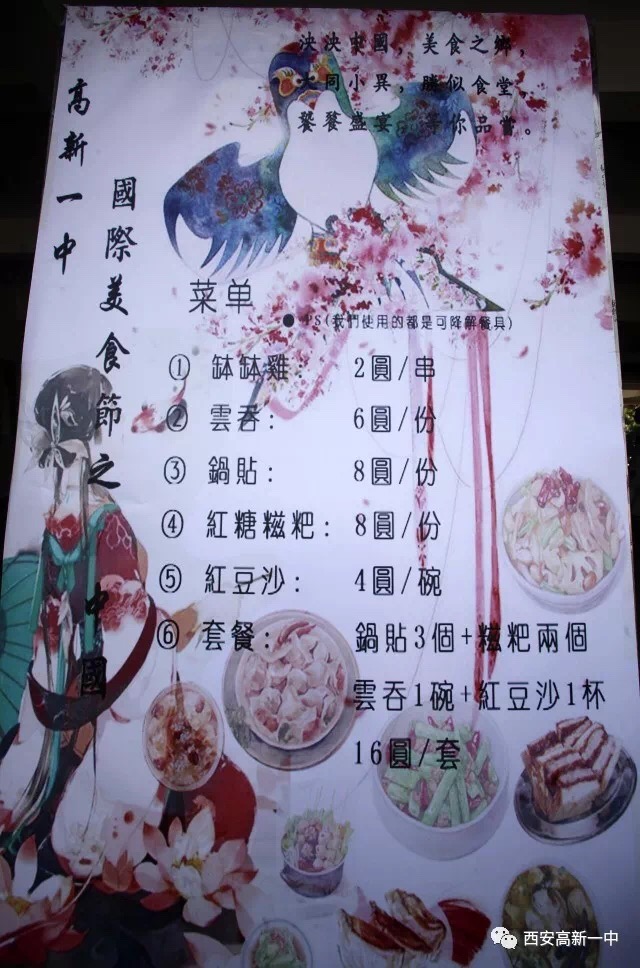 泱泱中國，美食之鄉，
大同小異，勝似食堂，
饕餮盛宴，等你品嘗。
高新一中
國際美食節之
中國
菜单
●PS(我們使用的都是可降解餐具)
① 缽缽雞： 2圓/串
② 雲吞： 6圓/份
③ 鍋貼： 8圓/份
④ 紅糖糍粑： 8圓/份
⑤ 紅豆沙： 4圓/碗
⑥ 套餐： 鍋貼3個+糍粑兩個
雲吞1碗+紅豆沙1杯
16圓/套
西安高新一中